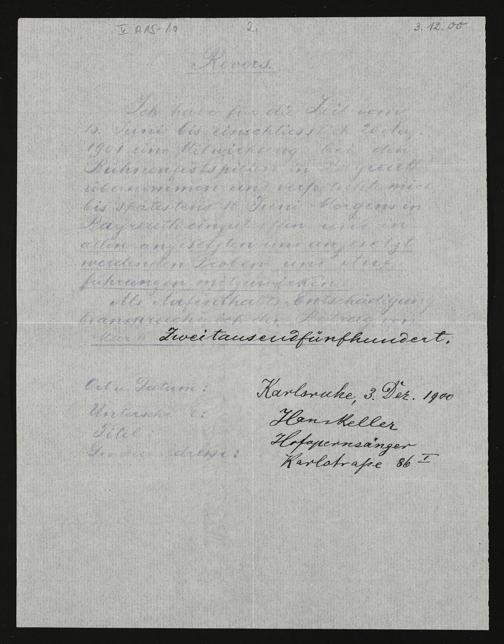 V A 15-10 2. 3.12.00
Revers.
Ich habe für die Zeit vom
15. Juni bis einschliesslich 20 Aug.
1901 eine Mitwirkung bei den
Bühnenfestspielen in Bayreuth
übernommen und verpflichte mich
bis spätestens 15 Juni Morgens in
Bayreuth einzutreffen und in
allen angesetzten und angesetzt
werdenden Proben und Auf
führungen mitzuwirken.
Als Aufenthalts-Entschädigung
beanspruche ich den Betrag von
Mark Zweitausendfünfhundert.
Ort u. Datum: Karlsruhe, 3. Dez. 1900
Unterschrift: Hans Keller
Titel Hofopernsänger
Adresse: Karlstraße 86 I